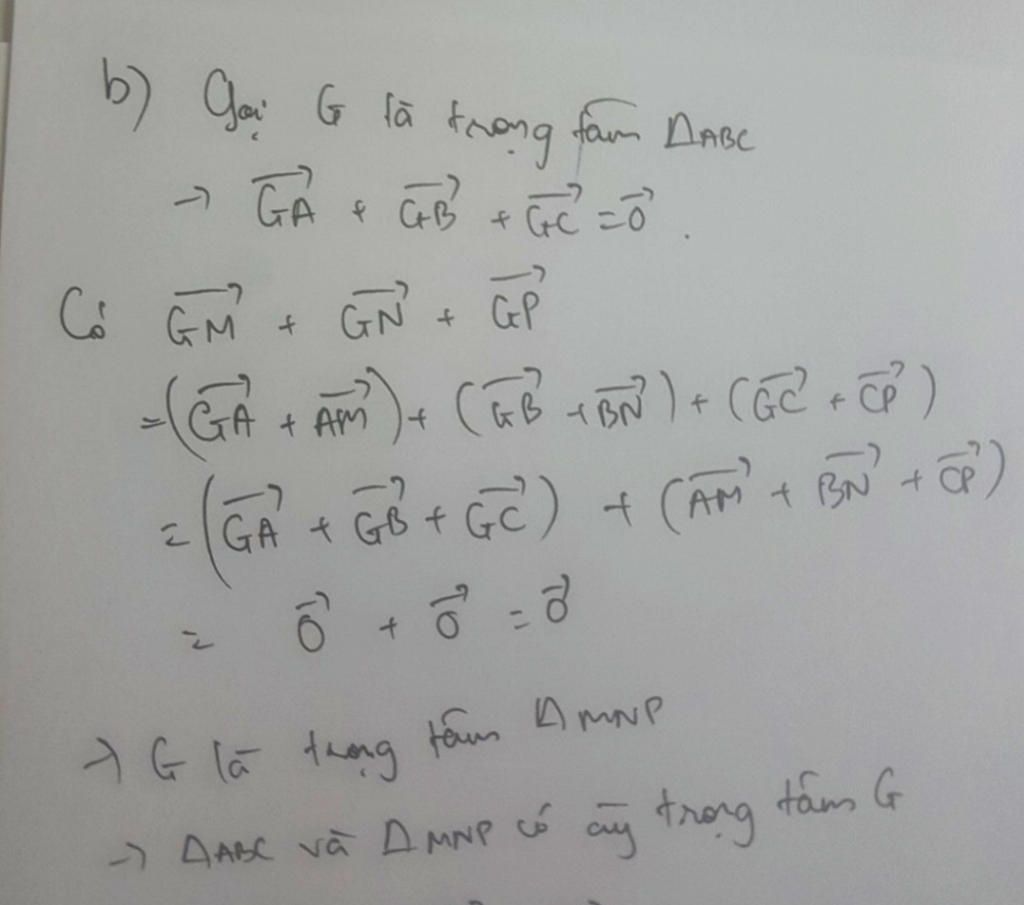 b) Gọi G là trọng tâm ΔABC
→ \overrightarrow{GA} + \overrightarrow{GB} + \overrightarrow{GC} = \vec{0}.
Có \overrightarrow{GM} + \overrightarrow{GN} + \overrightarrow{GP}
= (\overrightarrow{GA} + \overrightarrow{AM}) + (\overrightarrow{GB} + \overrightarrow{BN}) + (\overrightarrow{GC} + \overrightarrow{CP})
= (\overrightarrow{GA} + \overrightarrow{GB} + \overrightarrow{GC}) + (\overrightarrow{AM} + \overrightarrow{BN} + \overrightarrow{CP})
= \vec{0} + \vec{0} = \vec{0}
→ G là trọng tâm ΔMNP
→ ΔABC và ΔMNP có trọng tâm G